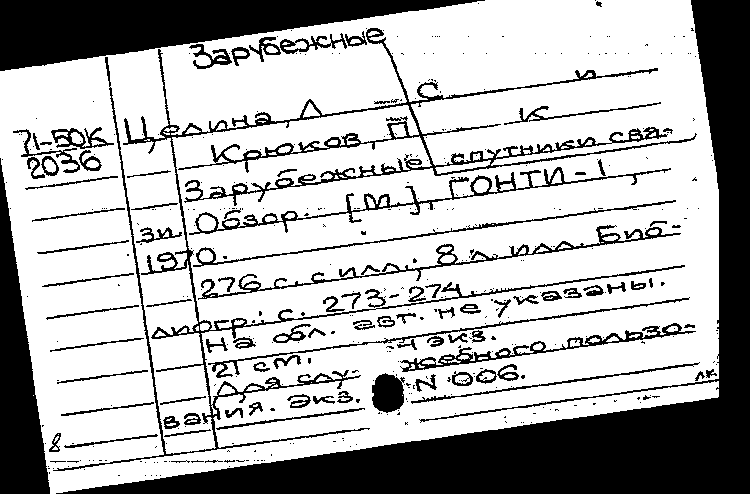 Зарубежные
71-50К Целина, Л С и
2036 Крюков, П К
Зарубежные спутники свя-
зи. Обзор. [М.], ГОНТИ-1,
1970.
276 с. с илл.; 8 л. илл. Биб-
лиогр.: с. 273-274.
На обл. авт. не указаны.
21 см. 4 экз.
Для служебного пользо-
вания. Экз. N 006.
8 лк